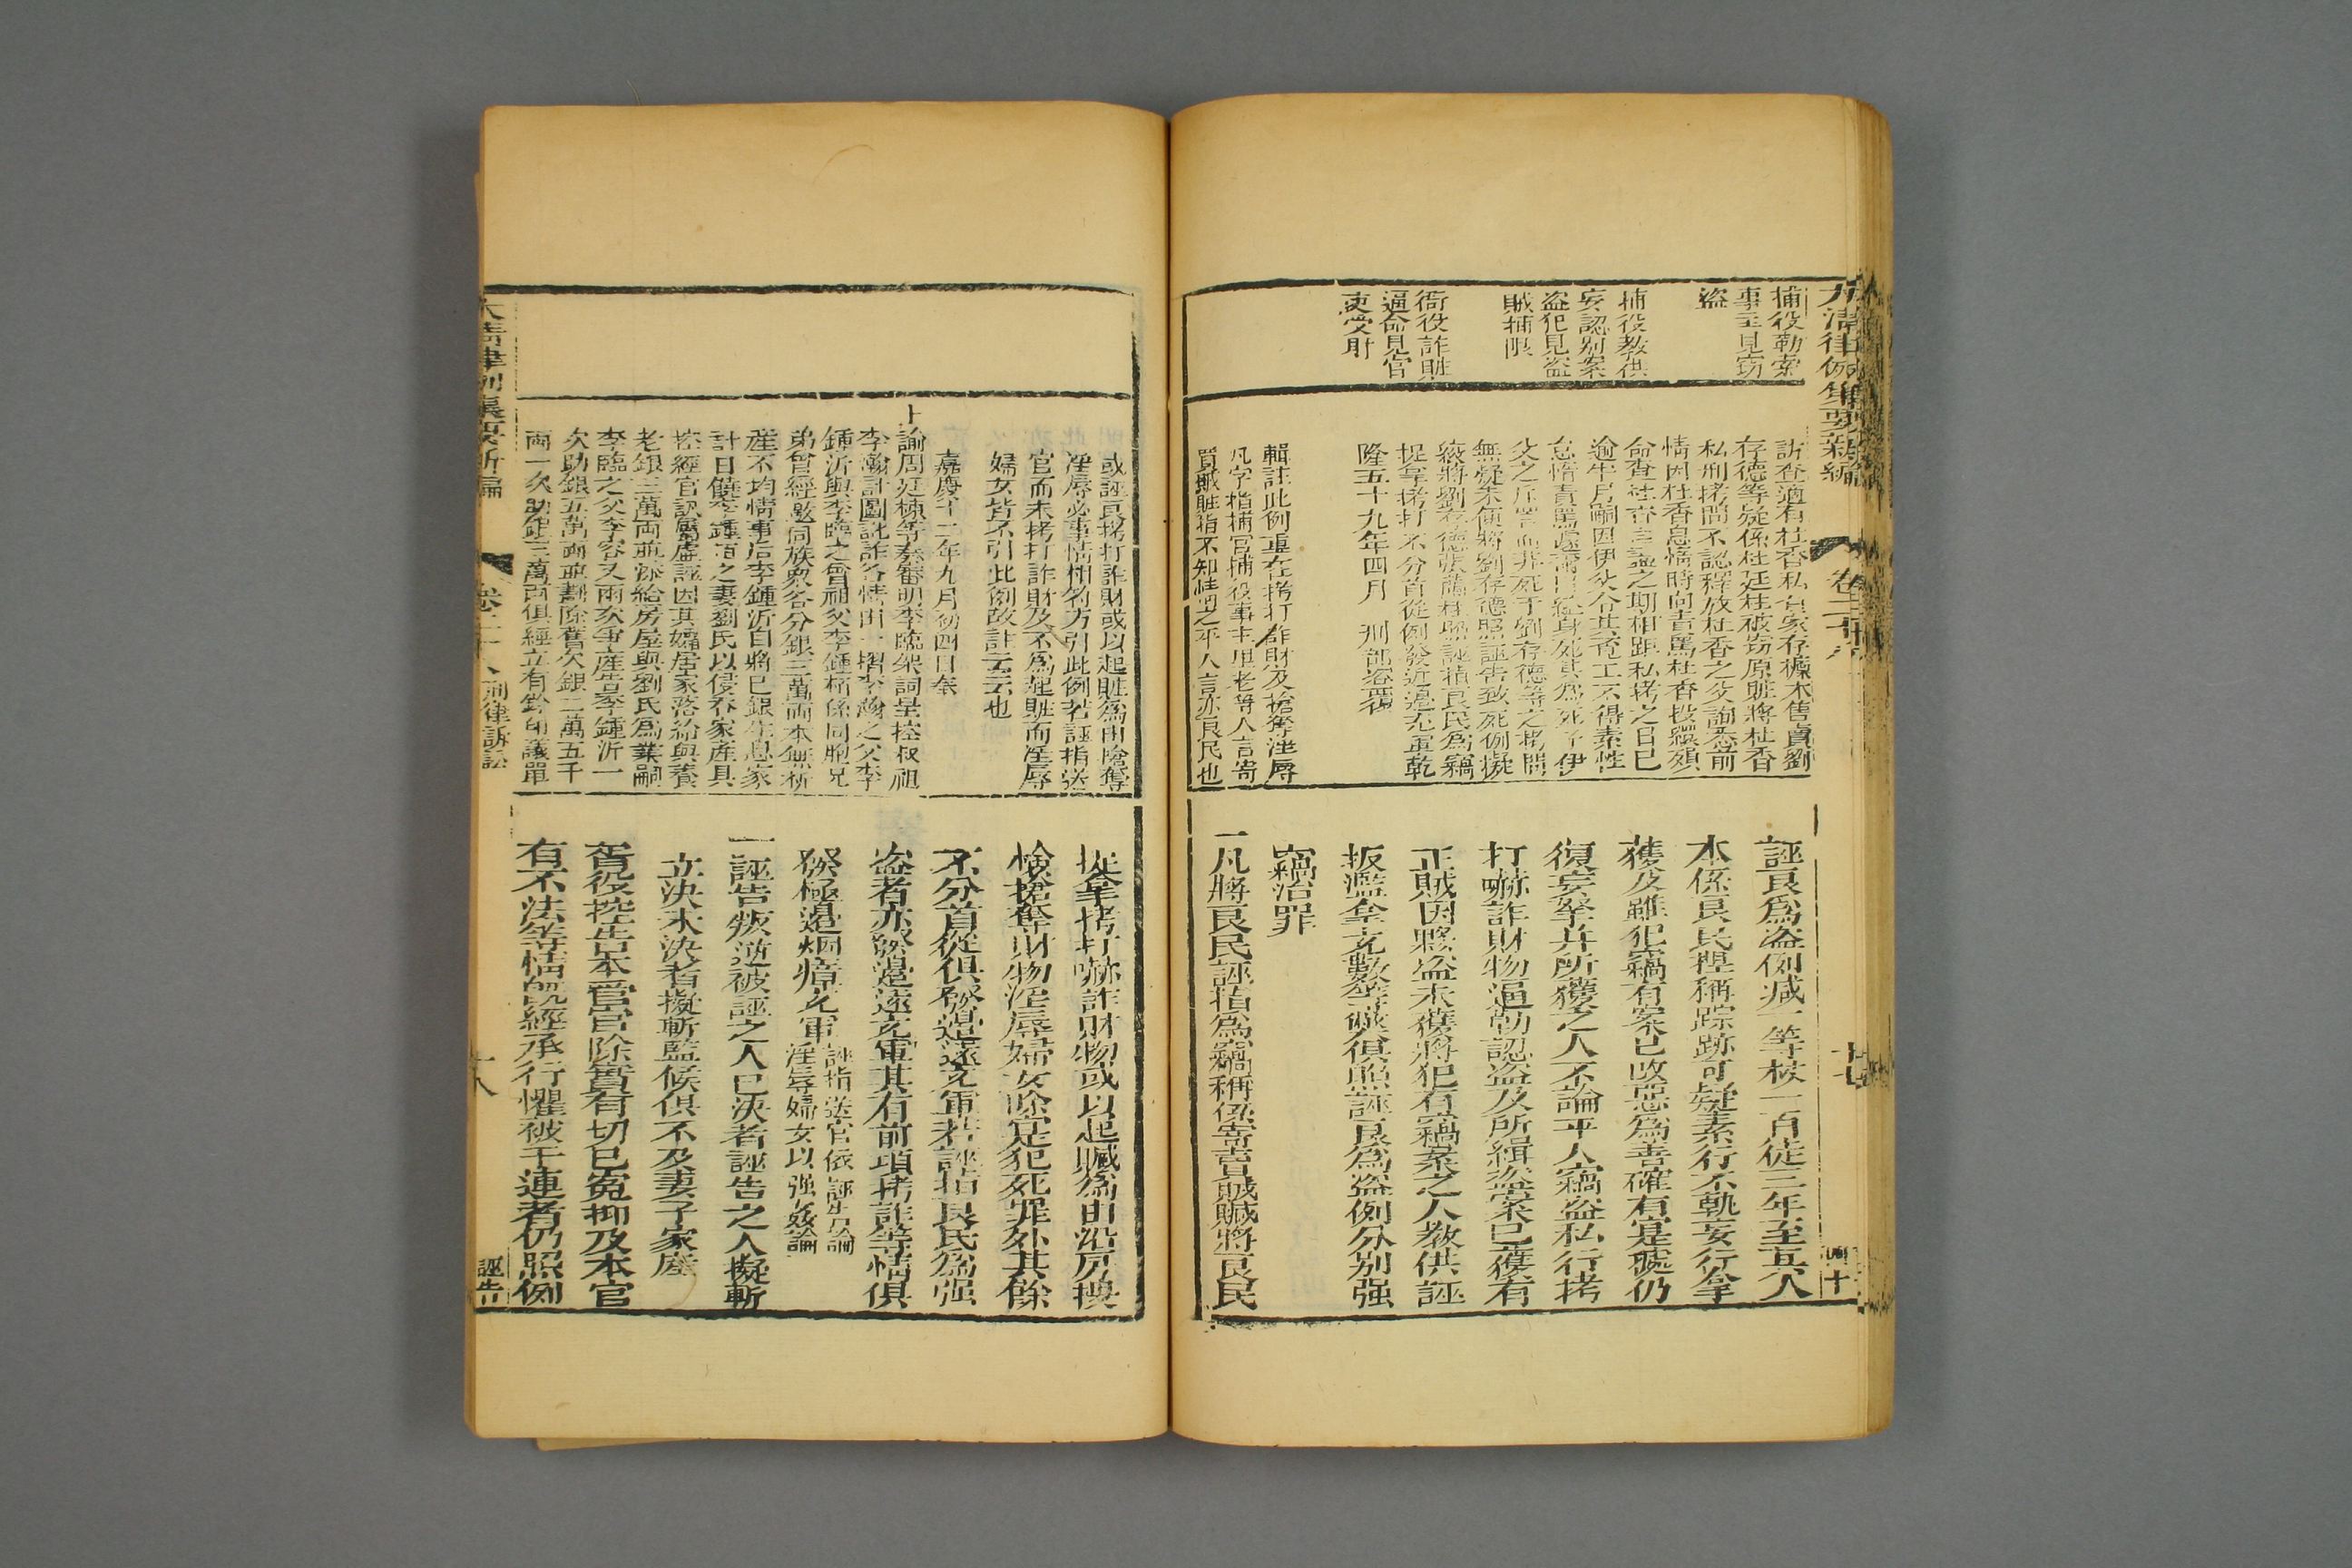 大清律例集要新編
卷二十八
十七
捕役勒索
事主見窃
盜
捕役教供
妄認别案
盗犯見盗
賊捕限
衙役詐賍
逼命見官
吏受財
訪查適有杜香私自家存槺木售賣劉
存德等疑係杜廷柱被窃原賍將杜香
私刑拷問不認釋放杜香之父詢悉前
情因杜香怠惰時向責罵杜香投繯殞
命查杜香自盡之期相距私拷之日已
逾半月嗣因伊父令其覓工不得素性
父之斥詈而非死于劉存德等之拷問
無疑未便將劉存德照誣告致死例擬
絞將劉存德張蘭林照誣指良民為竊
捉拿拷打不分首從例發近邊充軍乾
隆五十九年四月 刑部咨覆
輯註此例重在拷打詐財及搶奪淫辱
凡字指捕官捕役事主里老等人言寄
買賊賍指不知情者之平人言亦良民也
誣良為盗例减一等杖一百徒三年至兵人
本係良民揑稱踪跡可疑素行不軌妄行拿
獲及雖犯竊有案已改惡為善確有寔據仍
復妄拏并所獲之人不論平人竊盗私行拷
打嚇詐財物逼勒認盗及所緝盗案已獲有
正賊因夥盗未獲將犯有竊案之人教供誣
扳濫拿充數等獘俱照誣良為盗例分别强
竊治罪
一凡將良民誣指為竊稱係寄賣賊贓將良民
或誣良拷打詐財或以起賍為由搶奪
淫辱必事情相符方引此例若誣指送
官而未拷打詐財及不為起賍而淫辱
婦女皆不引此例故註云云也
嘉慶十二年九月初四日奉
上諭周廷棟等奏審明李臨架詞呈控叔祖
李瀚計圖訛詐各情由一摺李瀚之父李
鍾沂與李臨之曾祖父李鍾栢係同胞兄
弟曾經邀同族衆各分銀三萬両本無析
産不均情事后李鍾沂自將已銀生息家
計日饒李鍾栢之妻劉氏以侵吞家産具
控經官訊屬虛誣因其孀居家落給與養
老銀三萬両並添給房屋與劉氏為業嗣
李臨之父李容又兩次争産告李鍾沂一
次助銀五萬両並劃除舊欠銀二萬五千
両一次助銀三萬両俱經立有鈐印議單
捉拿拷打嚇詐財物或以起贓為由沿房搜
檢搶奪財物淫辱婦女除寔犯死罪外其餘
不分首從俱發邊遠充軍若誣指良民為强
盗者亦發邊遠充軍其有前項拷詐等情俱
發極邊烟瘴充軍誣指送官依誣告論淫辱婦女以强姦論
一誣告叛逆被誣之人已決者誣告之人擬斬
立決未決者擬斬監候俱不及妻子家産
胥役控告本管官除實有切已寃抑及本官
有不法等情既經承行懼被干連者仍照例
大清律例集要新編
卷二十八
刑律訴訟
十八
誣告